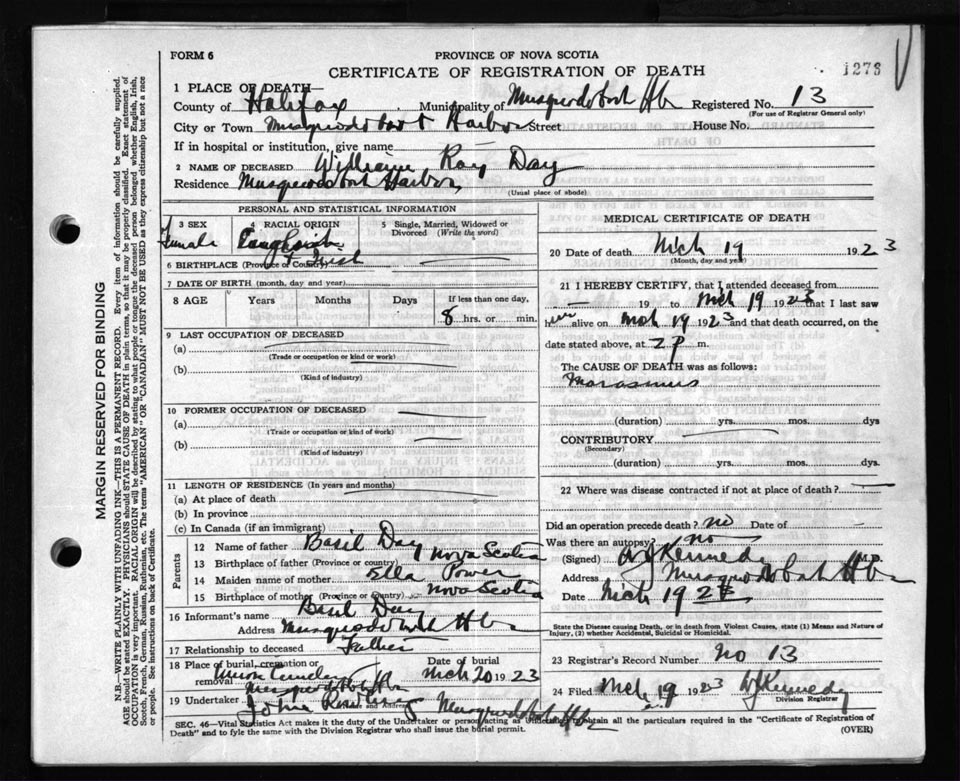 FORM 6
PROVINCE OF NOVA SCOTIA
CERTIFICATE OF REGISTRATION OF DEATH
1278
1 PLACE OF DEATH—
County of Halifax Municipality of Musquodoboit Hbr Registered No. 13
(For use of Registrar General only)
City or Town Musquodoboit Harbor Street House No.
If in hospital or institution, give name
2 NAME OF DECEASED William Roy Day
Residence Musquodoboit Harbor
(Usual place of abode)
PERSONAL AND STATISTICAL INFORMATION
3 SEX 4 RACIAL ORIGIN 5 Single, Married, Widowed or Divorced (Write the word)
Female
& Irish
6 BIRTHPLACE (Province or Country)
7 DATE OF BIRTH (month, day and year)
8 AGE Years Months Days If less than one day,
8 hrs. or min.
9 LAST OCCUPATION OF DECEASED
(a)
(Trade or occupation or kind or work)
(b)
(Kind of industry)
10 FORMER OCCUPATION OF DECEASED
(a)
(Trade or occupation or kind of work)
(b)
(Kind of industry)
11 LENGTH OF RESIDENCE (In years and months)
(a) At place of death
(b) In province
(c) In Canada (if an immigrant)
Parents
12 Name of father Basil Day
13 Birthplace of father (Province or country) Nova Scotia
14 Maiden name of mother Ella Power
15 Birthplace of mother (Province or Country) Nova Scotia
16 Informant's name Basil Day
Address Musquodoboit Hbr
17 Relationship to deceased Father
18 Place of burial, cremation or removal Date of burial
Musquodoboit Hbr Mch 20 1923
19 Undertaker John Address Musquodoboit Hbr
MEDICAL CERTIFICATE OF DEATH
20 Date of death Mch 19 1923
(Month, day and year)
21 I HEREBY CERTIFY, that I attended deceased from
— 19 to Mch 19 1923 that I last saw
him alive on Mch 19 1923 and that death occurred, on the
date stated above, at 2 p m.
The CAUSE OF DEATH was as follows:
Marasmus
(duration) yrs. mos. dys
CONTRIBUTORY
(Secondary)
(duration) yrs. mos. dys.
22 Where was disease contracted if not at place of death?
Did an operation precede death? no Date of —
Was there an autopsy? no
(Signed) Kennedy M.D.
Address Musquodoboit Hbr
Date Mch 19 23
State the Disease causing Death, or in death from Violent Causes, state (1) Means and Nature of
Injury, (2) whether Accidental, Suicidal or Homicidal.
23 Registrar's Record Number no 13
24 Filed Mch 19 1923 Kennedy
Division Registrar
SEC. 46—Vital Statistics Act makes it the duty of the Undertaker or person acting as Undertaker to obtain all the particulars required in the "Certificate of Registration of
Death" and to fyle the same with the Division Registrar who shall issue the burial permit.
(OVER)
MARGIN RESERVED FOR BINDING
N.B.—WRITE PLAINLY WITH UNFADING INK—THIS IS A PERMANENT RECORD. Every item of information should be carefully supplied.
AGE should be stated EXACTLY. PHYSICIANS should STATE CAUSE OF DEATH in plain terms, so that it may be properly classified. Exact statement of
OCCUPATION is very important. RACIAL ORIGIN will be described by stating to what people or tongue the deceased person belonged whether English, Irish,
Scotch, French, German, Russian, Ruthenian, etc. The terms "AMERICAN" OR "CANADIAN" MUST NOT BE USED as they express citizenship but not a race
or people. See instructions on back of Certificate.